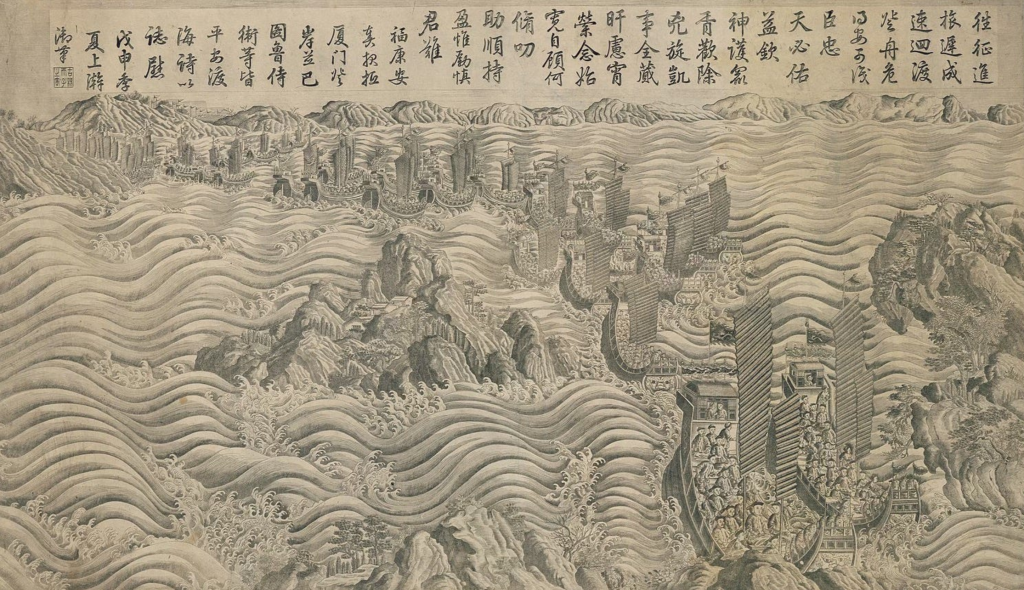 徃征進
旅遲成
速迴渡
登舟危
得安可識
臣忠
天必佑
益欽
神護衆
胥歡除
兇旋凱
事全蕆
旰慮宵
縈念始
寬自顧何
脩叨
助順持
盈惟勵慎
君難
福康安
奏報抵
厦门登
岸並巴
圖魯侍
衞等皆
平安渡
海詩以
誌慰
戊申季
夏上澣
御筆